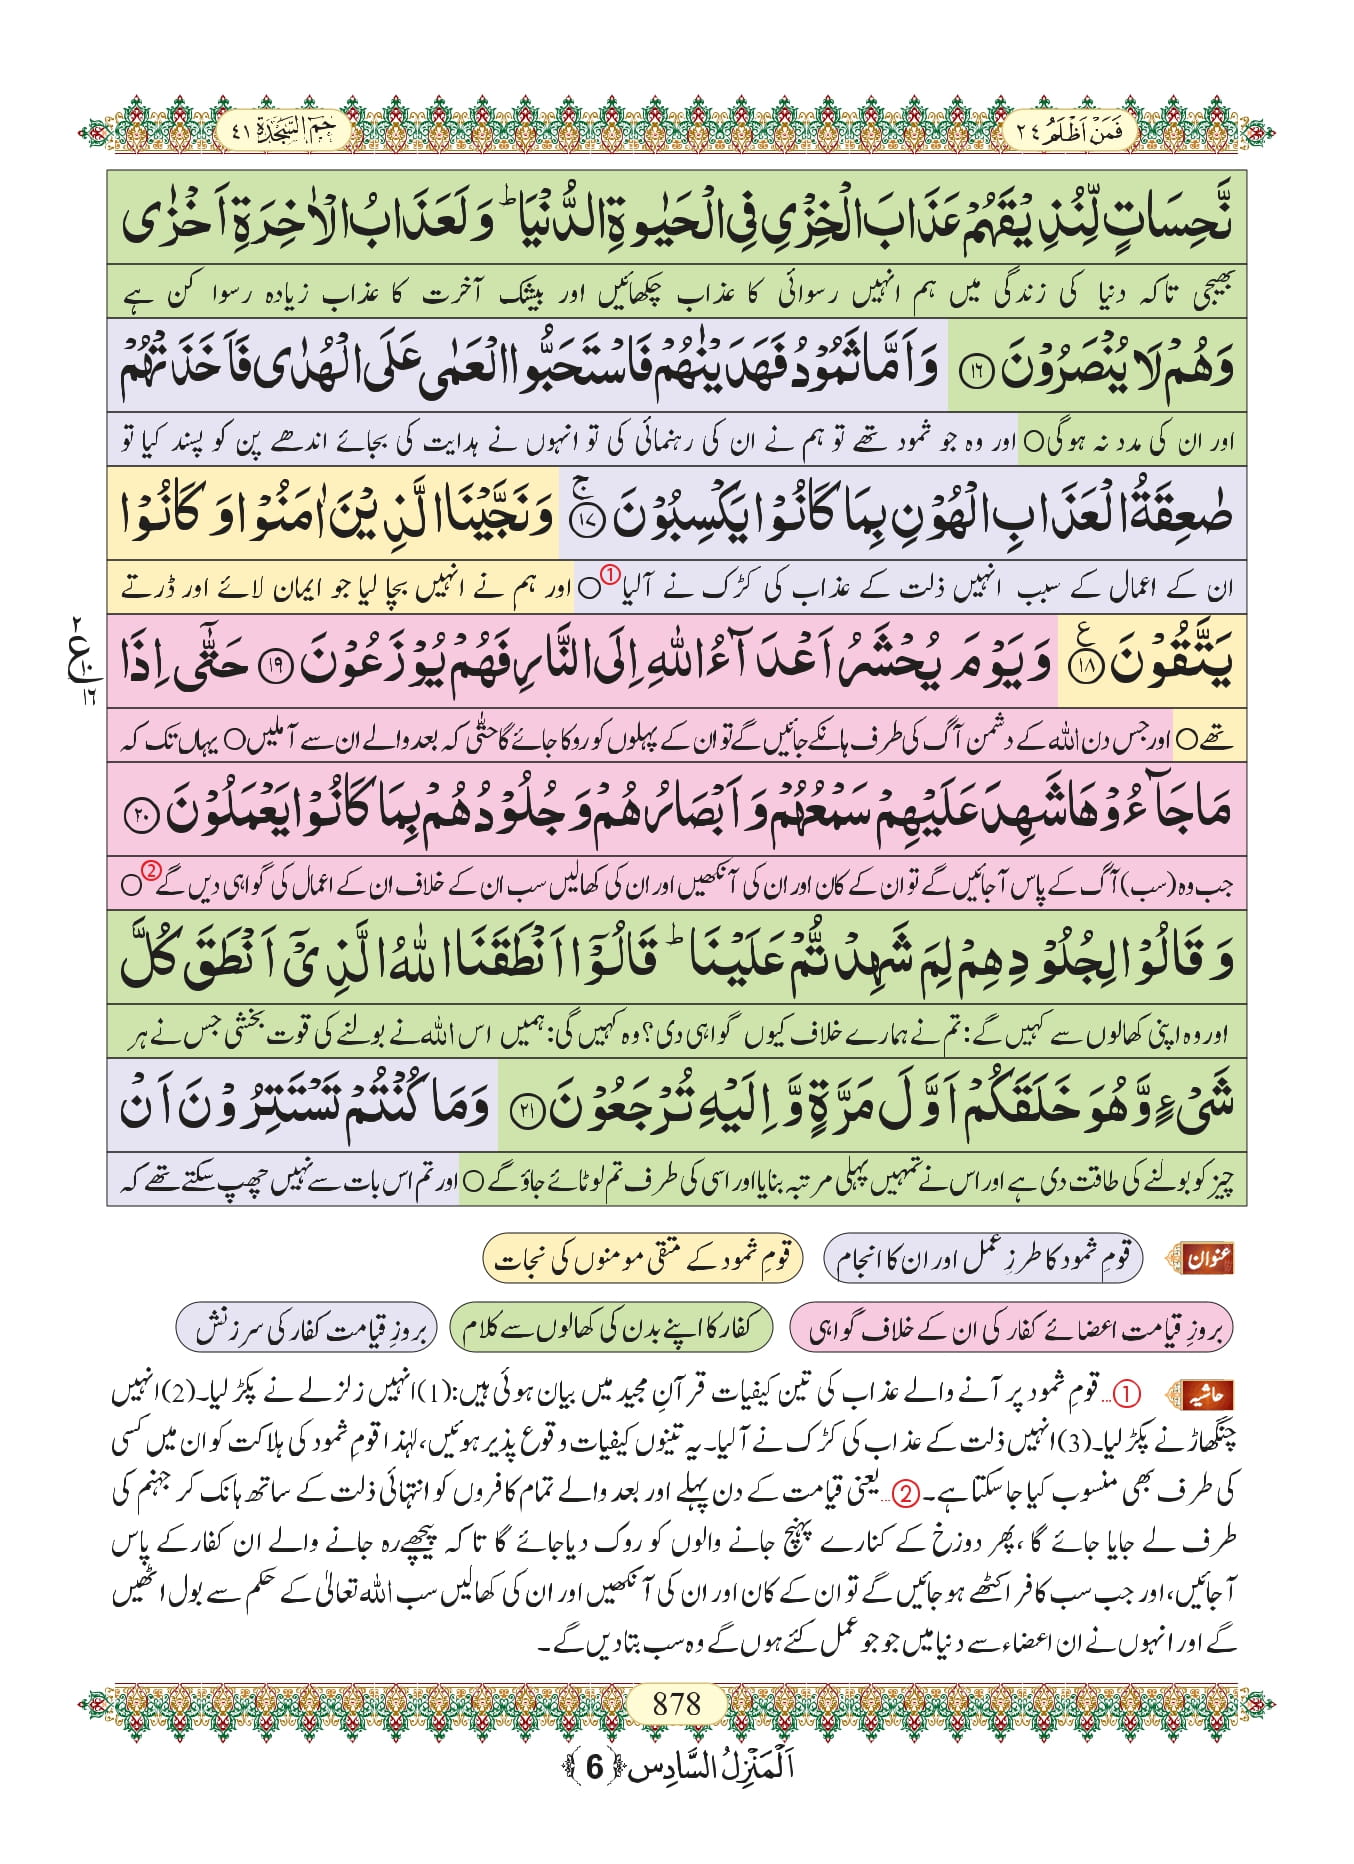 فَمَنْ اَظْلَمُ ٢٤
حٰمٓ السَّجْدَة ٤١
نَّحِسَاتٍ لِّنُذِیْقَهُمْ عَذَابَ الْخِزْیِ فِی الْحَیٰوةِ الدُّنْیَاؕ وَ لَعَذَابُ الْاٰخِرَةِ اَخْزٰى
بھیجی تاکہ دنیا کی زندگی میں ہم انہیں رسوائی کا عذاب چکھائیں اور بیشک آخرت کا عذاب زیادہ رسوا کن ہے
وَ هُمْ لَا یُنْصَرُوْنَ ﴿١٦﴾ وَ اَمَّا ثَمُوْدُ فَهَدَیْنٰهُمْ فَاسْتَحَبُّوا الْعَمٰى عَلَى الْهُدٰى فَاَخَذَتْهُمْ
اور ان کی مدد نہ ہوگی○ اور وہ جو ثمود تھے تو ہم نے ان کی رہنمائی کی تو انہوں نے ہدایت کی بجائے اندھے پن کو پسند کیا تو
صٰعِقَةُ الْعَذَابِ الْهُوْنِ بِمَا كَانُوْا یَكْسِبُوْنَ ﴿١٧﴾ۚ وَ نَجَّیْنَا الَّذِیْنَ اٰمَنُوْا وَ كَانُوْا
ان کے اعمال کے سبب انہیں ذلت کے عذاب کی کڑک نے آلیا①○ اور ہم نے انہیں بچا لیا جو ایمان لائے اور ڈرتے
یَتَّقُوْنَ ﴿١٨﴾ع وَ یَوْمَ یُحْشَرُ اَعْدَآءُ اللّٰهِ اِلَى النَّارِ فَهُمْ یُوْزَعُوْنَ ﴿١٩﴾ حَتّٰۤى اِذَا
٢
ع
١٠
١٦
تھے○ اور جس دن اللہ کے دشمن آگ کی طرف ہانکے جائیں گے تو ان کے پہلوں کو روکا جائے گا حتّٰی کہ بعد والے ان سے آملیں○ یہاں تک کہ
مَا جَآءُوْهَا شَهِدَ عَلَیْهِمْ سَمْعُهُمْ وَ اَبْصَارُهُمْ وَ جُلُوْدُهُمْ بِمَا كَانُوْا یَعْمَلُوْنَ ﴿٢٠﴾
جب وہ (سب) آگ کے پاس آجائیں گے تو ان کے کان اور ان کی آنکھیں اور ان کی کھالیں سب ان کے خلاف ان کے اعمال کی گواہی دیں گے②○
وَ قَالُوْا لِجُلُوْدِهِمْ لِمَ شَهِدْتُّمْ عَلَیْنَاؕ قَالُوْۤا اَنْطَقَنَا اللّٰهُ الَّذِیْۤ اَنْطَقَ كُلَّ
اور وہ اپنی کھالوں سے کہیں گے: تم نے ہمارے خلاف کیوں گواہی دی؟ وہ کہیں گی: ہمیں اس اللہ نے بولنے کی قوت بخشی جس نے ہر
شَیْءٍ وَّ هُوَ خَلَقَكُمْ اَوَّلَ مَرَّةٍ وَّ اِلَیْهِ تُرْجَعُوْنَ ﴿٢١﴾ وَ مَا كُنْتُمْ تَسْتَتِرُوْنَ اَنْ
چیز کو بولنے کی طاقت دی ہے اور اس نے تمہیں پہلی مرتبہ بنایا اور اسی کی طرف تم لوٹائے جاؤ گے○ اور تم اس بات سے نہیں چھپ سکتے تھے کہ
عنوان قومِ ثمود کا طرزِ عمل اور ان کا انجام قومِ ثمود کے متقی مومنوں کی نجات
بروزِ قیامت اعضائے کفار کی ان کے خلاف گواہی کفار کا اپنے بدن کی کھالوں سے کلام بروزِ قیامت کفار کی سرزنش
حاشیہ ①... قومِ ثمود پر آنے والے عذاب کی تین کیفیات قرآنِ مجید میں بیان ہوئی ہیں: (1) انہیں زلزلے نے پکڑ لیا۔ (2) انہیں
چنگھاڑ نے پکڑ لیا۔ (3) انہیں ذلت کے عذاب کی کڑک نے آلیا۔ یہ تینوں کیفیات وقوع پذیر ہوئیں، لہٰذا قومِ ثمود کی ہلاکت کو ان میں کسی
کی طرف بھی منسوب کیا جا سکتا ہے۔ ②... یعنی قیامت کے دن پہلے اور بعد والے تمام کافروں کو انتہائی ذلت کے ساتھ ہانک کر جہنم کی
طرف لے جایا جائے گا، پھر دوزخ کے کنارے پہنچ جانے والوں کو روک دیا جائے گا تا کہ پیچھے رہ جانے والے ان کفار کے پاس
آجائیں، اور جب سب کافر اکٹھے ہو جائیں گے تو ان کے کان اور ان کی آنکھیں اور ان کی کھالیں سب اللہ تعالیٰ کے حکم سے بول اٹھیں
گے اور انہوں نے ان اعضاء سے دنیا میں جو جو عمل کئے ہوں گے وہ سب بتا دیں گے۔
878
اَلْمَنْزِلُ السَّادِس ﴿6﴾